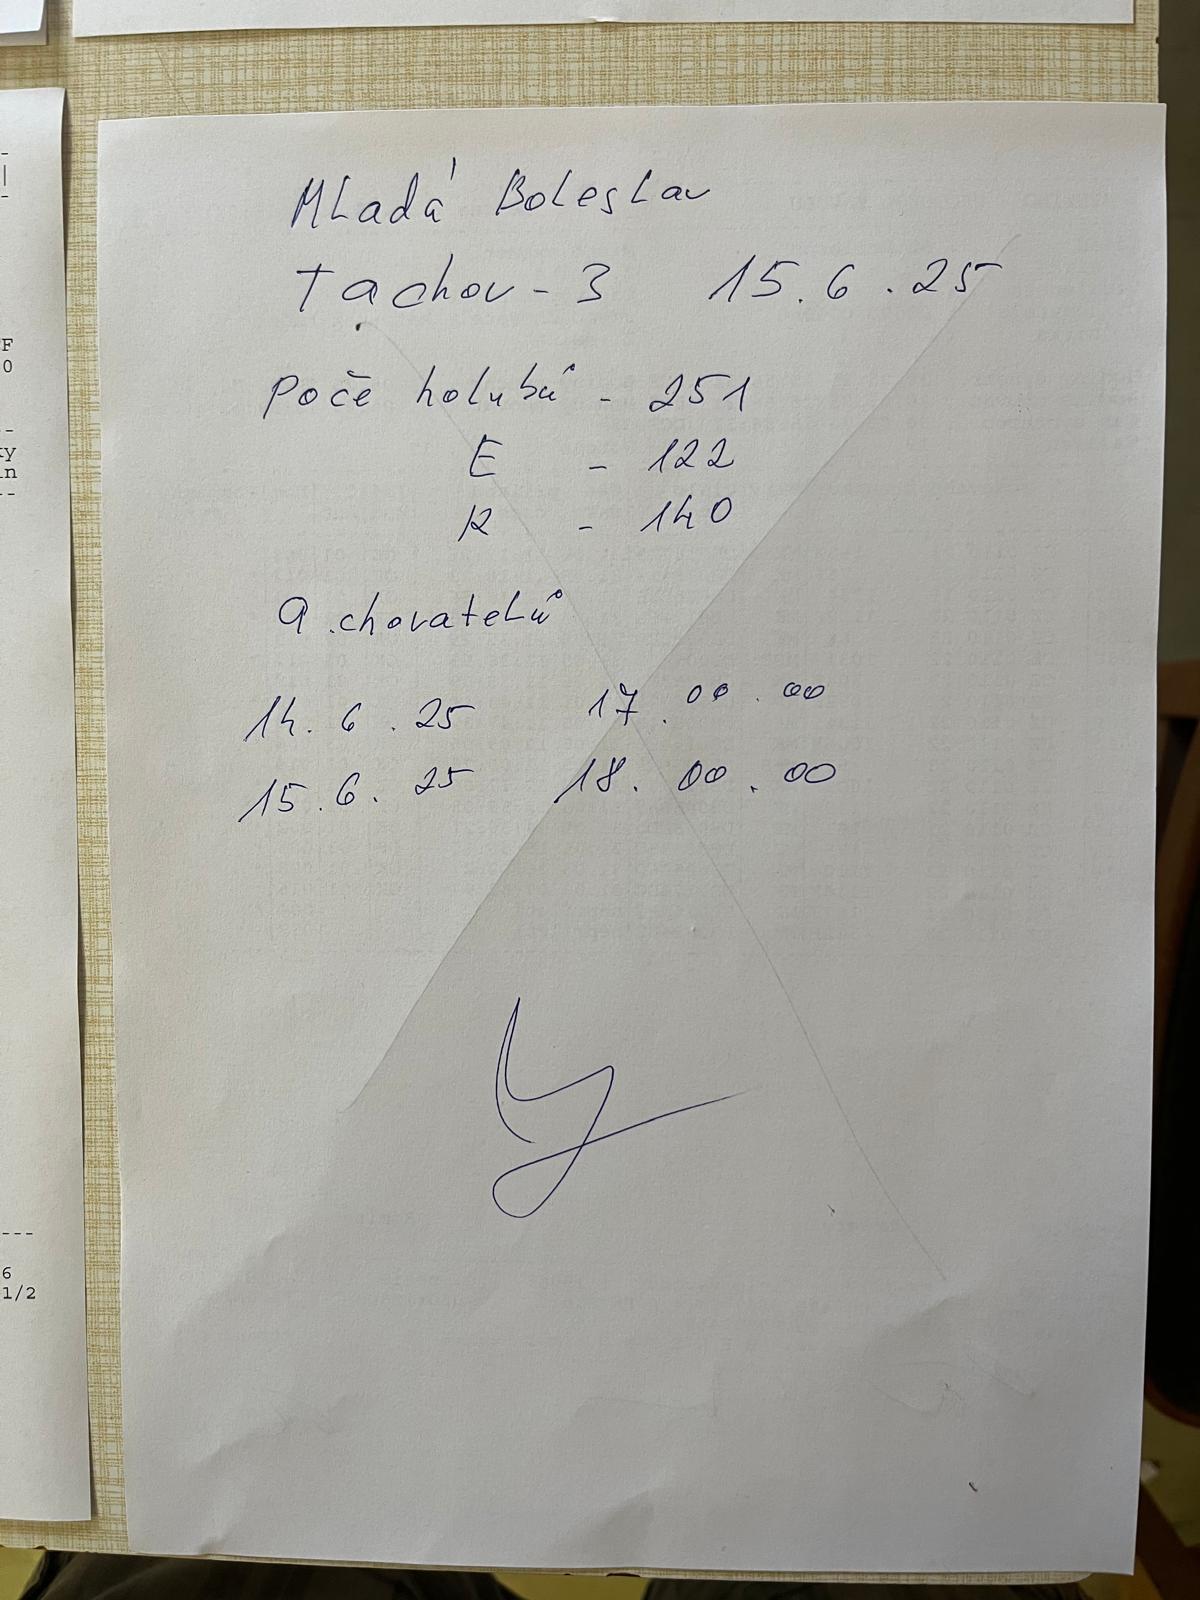 Mladá Boleslav
Tachov - 3 15.6.25
Poče holubů - 251
E - 122
R - 140
9 chovatelů
14.6.25 17.00.00
15.6.25 18.00.00
F
0
ky
in
6
1/2